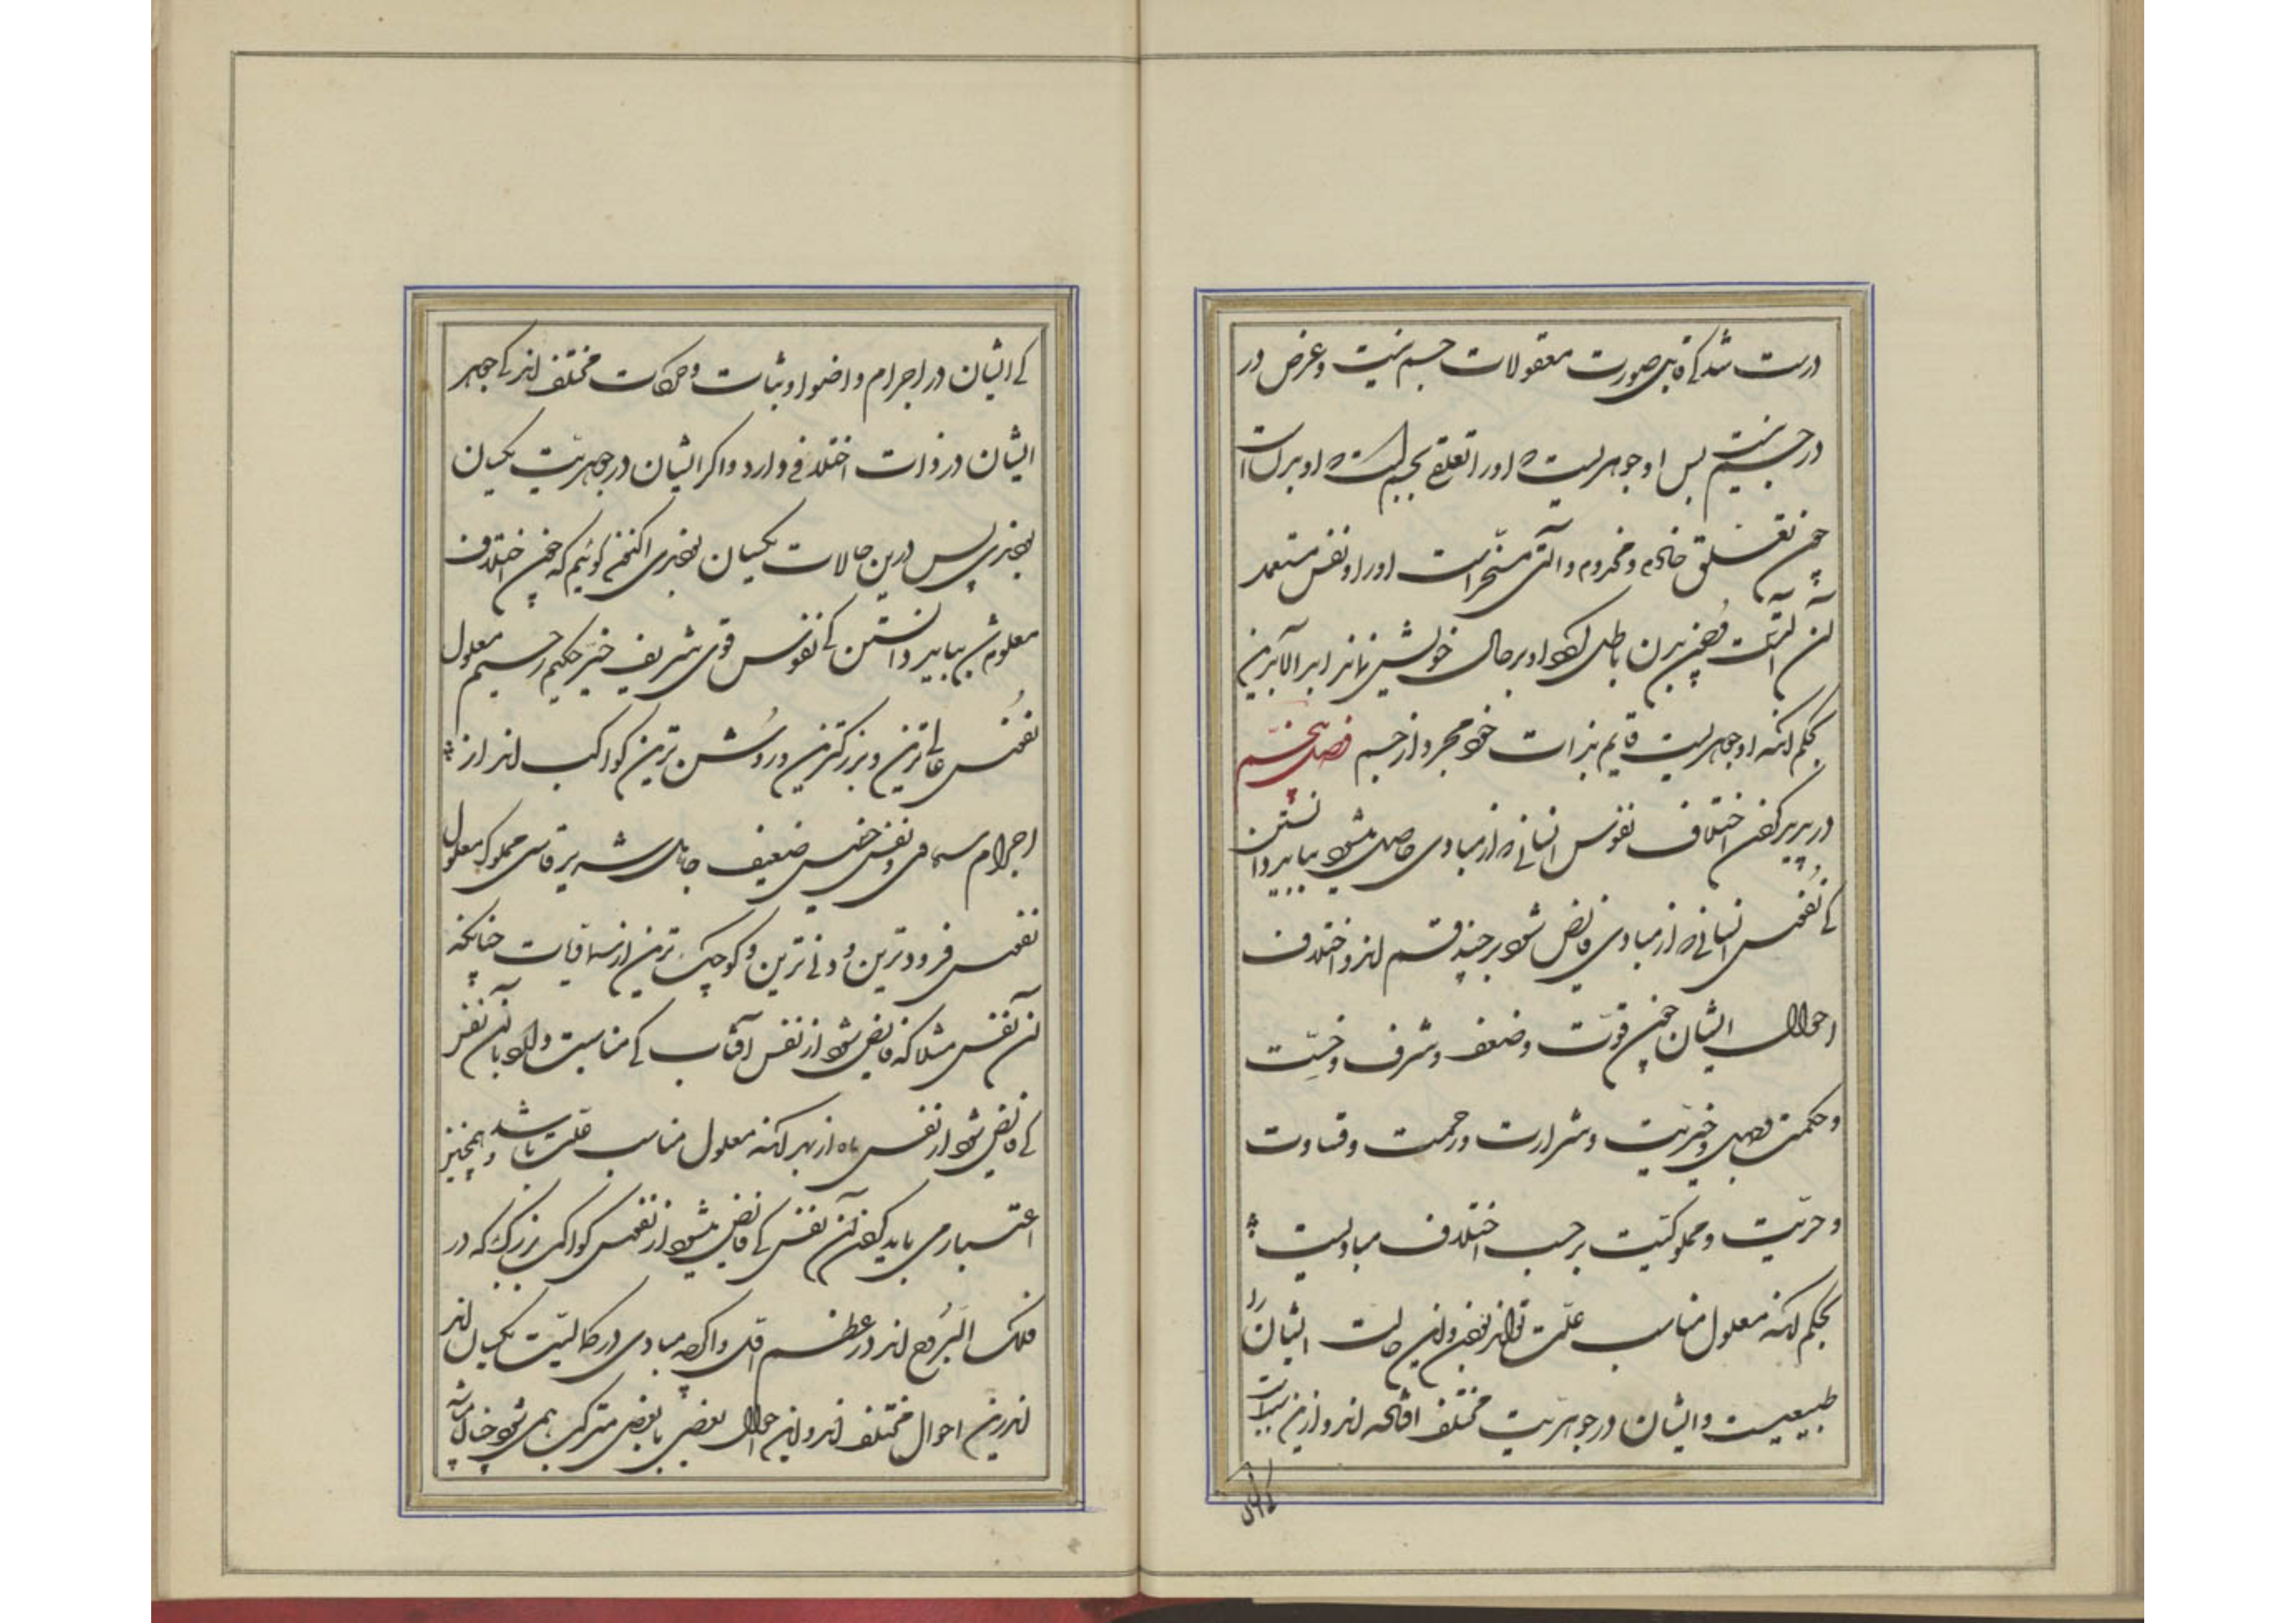 درست شد کی قابل صورت معقولات جسم نیست و عرض در
در جسم نیست پس او جوهریست و اورا تعلق بجسم است و او بدن است
چون تعلق خادم و مخدوم و آلتی مسخر است اورا و نفس مستعمد
آن آلتست و چون بدن باطل شود او بر حال خویش بماند ابد الآبدین
بحکم آنکه او جوهریست قایم بذات خود مجرد از جسم فصل پنجم
در پدید کردن اختلاف نفوس انسانی و از مبادی حاصل میشود بباید دانستن
کی نفوس انسانی و از مبادی فایض شود بر چند قسم اند و اختلاف
احوال ایشان چون قوت و ضعف و شرف و خسّت
و حکمت و جهل و خیریت و شرارت و رحمت و قساوت
و حرّیت و مملوکیّت بر حسب اختلاف مبادیست
بحکم آنکه معلول مناسب علّت تواند بودن و این حالت ایشان را
طبیعیست و ایشان در جوهریّت مختلف افتاده اند و ازین سبب است
کی ایشان
کی ایشان در اجرام و اضوا و ثبات و حرکات مختلف اند کی جوهر
ایشان در ذوات اختلافی دارد و اگر ایشان در جوهریّت یکسان
بودندی پس درین حالات یکسان بودندی اکنون گوئیم که چون اختلاف
معلوم شد بباید دانستن کی نفوس قوی شریف خیّر حکیم رحیم معلول
نفوس عالی ترین و بزرکترین و روشن ترین کواکب اند از
اجرام سماوی و نفس خسیس ضعیف جاهل شریر قاسی مملوک معلول
نفوس فرودترین و دنی ترین و کوچک ترین از سماویات چنانکه
آن نفس مثلا که فایض شود از نفس آفتاب کی مناسبت دارد با آن نفس
کی فایض شود از نفس ماه از بهر آنکه معلول مناسب علّت باشد و همچنین
اعتبار می باید کردن آن نفس کی فایض میشود از نفوس کواکب بزرک که در
فلک البروج اند در عظم اقل و اکر چه مبادی در کمالیّت یکسان اند
اندرین احوال مختلف اند و این احوال بعضی با بعضی مترکب همی شود چنان